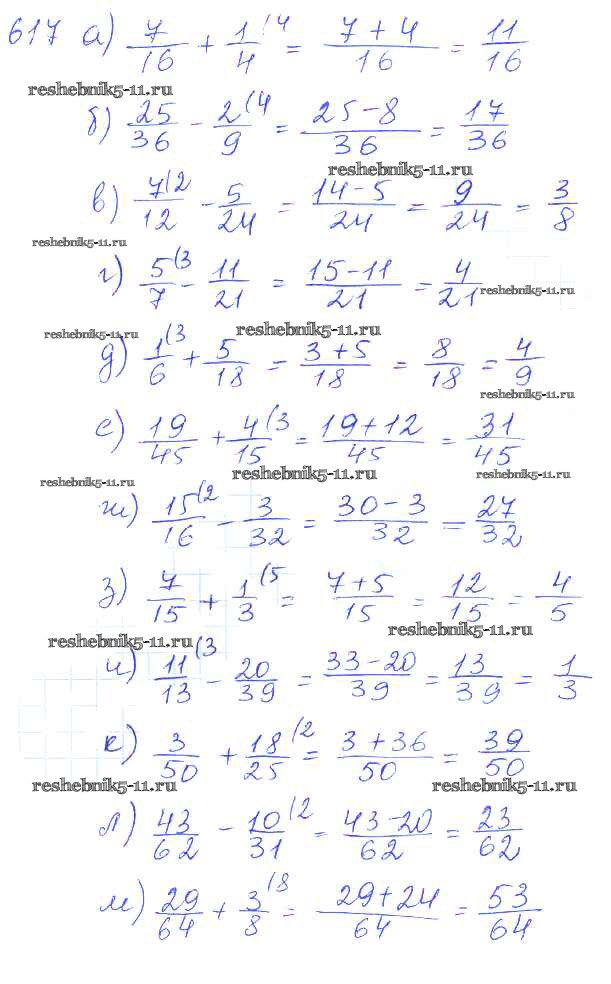 617 а) 7/16 + 1/4 (4 = (7+4)/16 = 11/16
reshebnik5-11.ru
б) 25/36 - 2/9 (4 = (25-8)/36 = 17/36
reshebnik5-11.ru
в) 7/12 (2 - 5/24 = (14-5)/24 = 9/24 = 3/8
reshebnik5-11.ru
г) 5/7 (3 - 11/21 = (15-11)/21 = 4/21
reshebnik5-11.ru
reshebnik5-11.ru reshebnik5-11.ru
д) 1/6 (3 + 5/18 = (3+5)/18 = 8/18 = 4/9
reshebnik5-11.ru
е) 19/45 + 4/15 (3 = (19+12)/45 = 31/45
reshebnik5-11.ru reshebnik5-11.ru reshebnik5-11.ru
ж) 15/16 (2 - 3/32 = (30-3)/32 = 27/32
з) 7/15 + 1/3 (5 = (7+5)/15 = 12/15 = 4/5
reshebnik5-11.ru reshebnik5-11.ru
и) 11/13 (3 - 20/39 = (33-20)/39 = 13/39 = 1/3
к) 3/50 + 18/25 (2 = (3+36)/50 = 39/50
reshebnik5-11.ru reshebnik5-11.ru
л) 43/62 - 10/31 (2 = (43-20)/62 = 23/62
м) 29/64 + 3/8 (8 = (29+24)/64 = 53/64